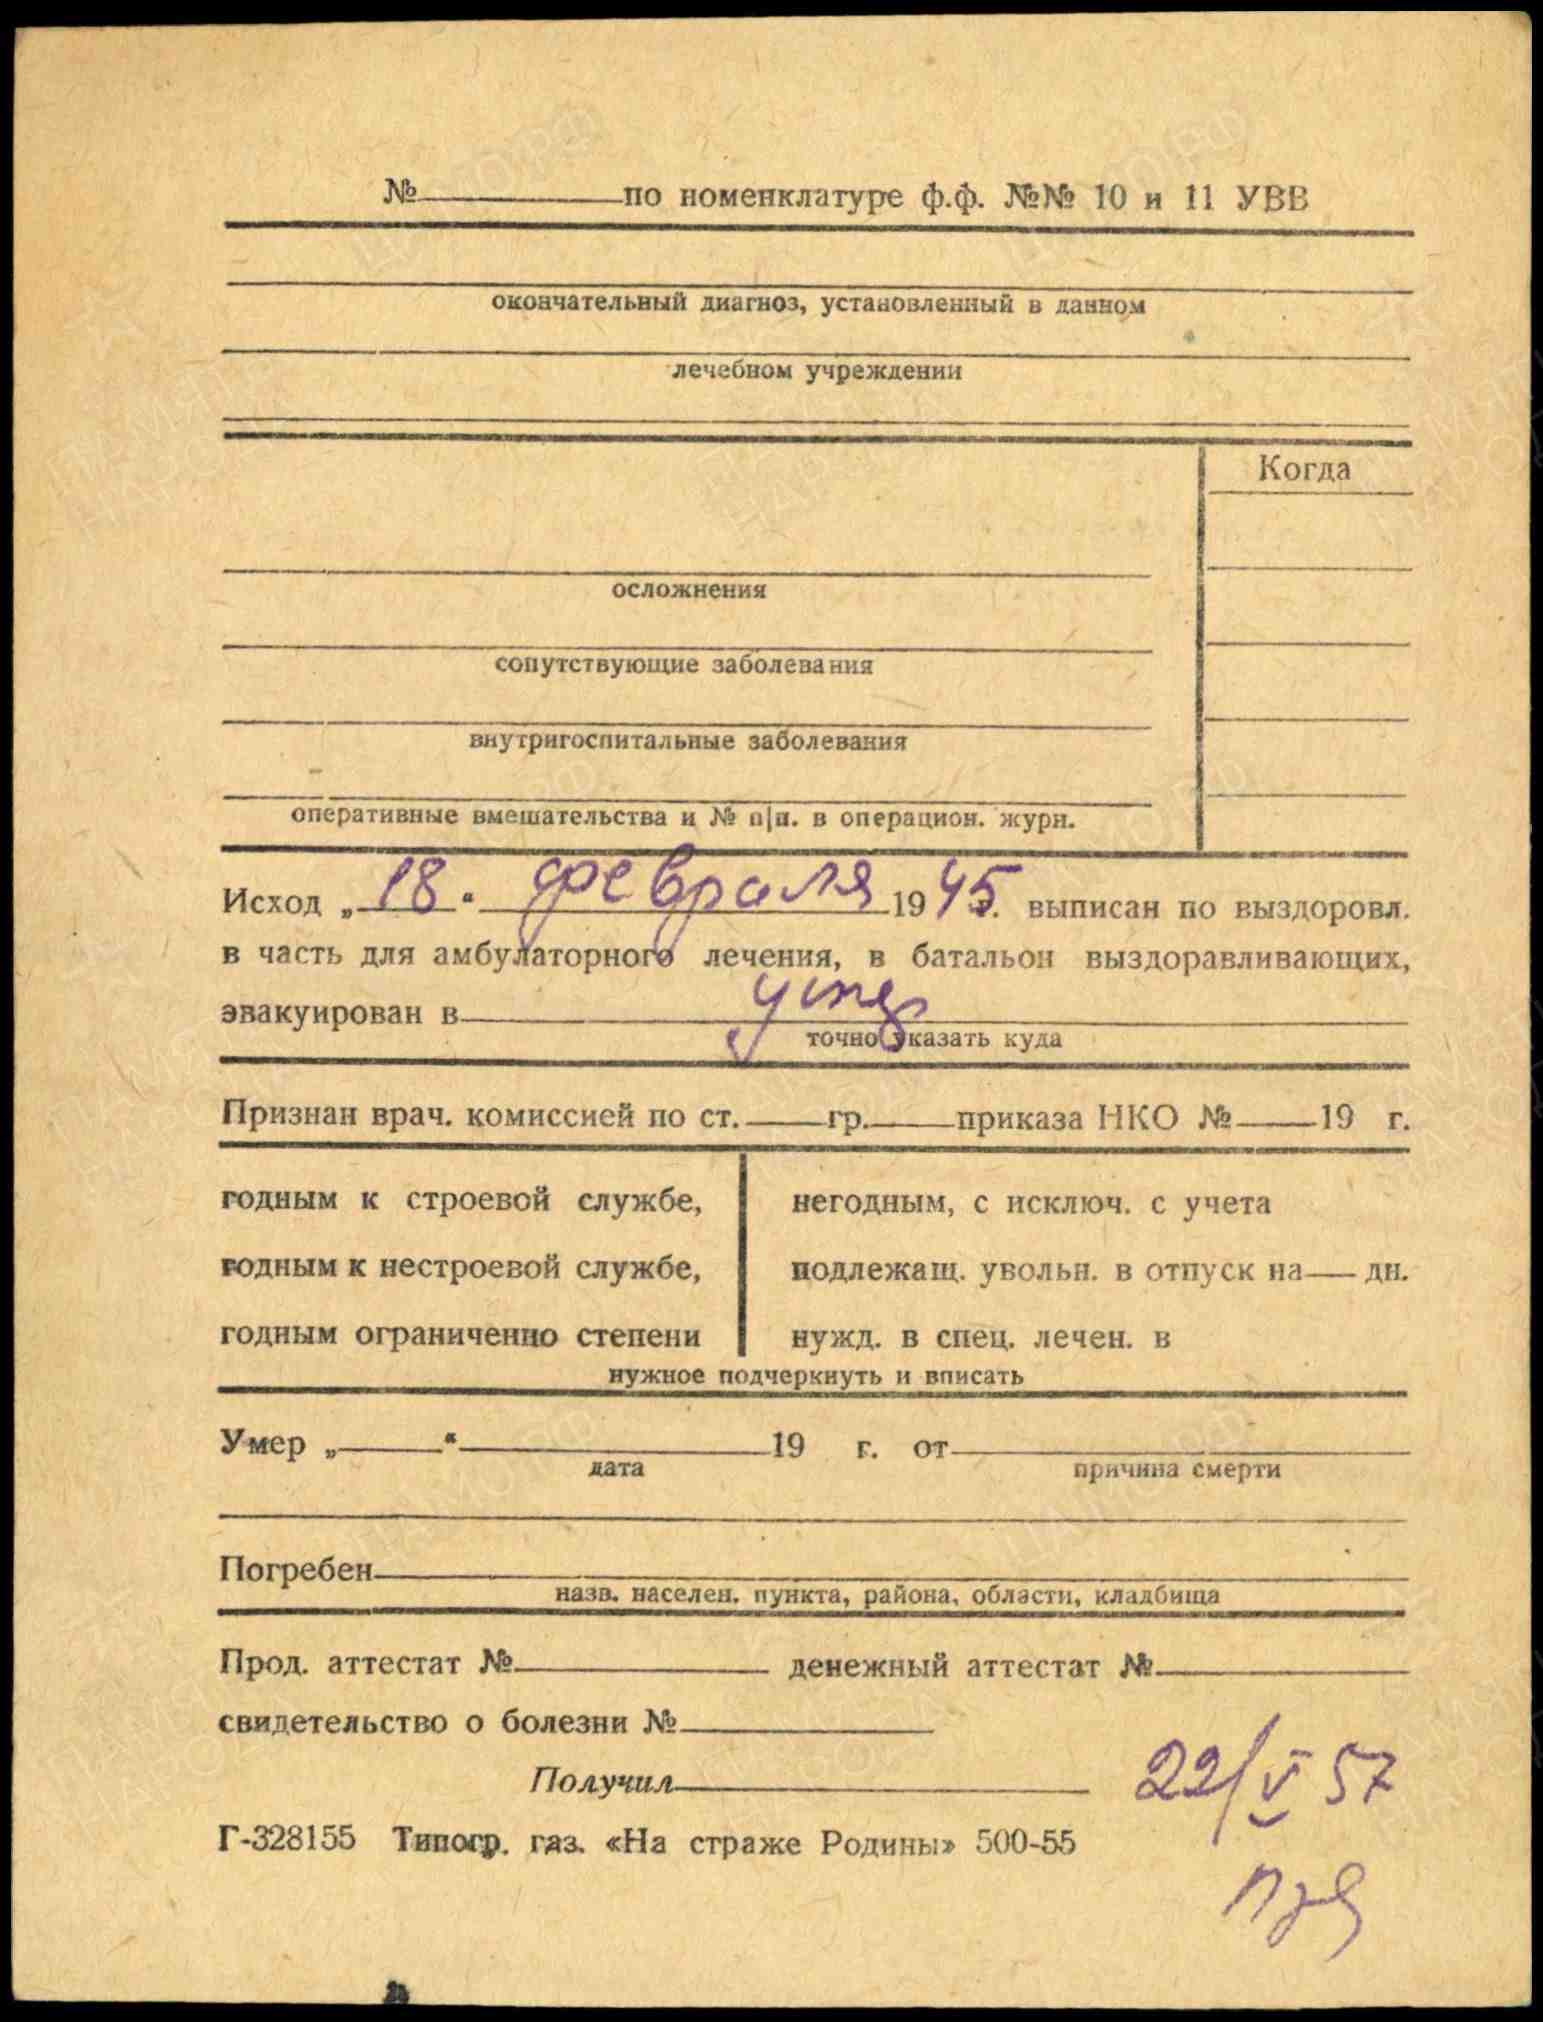 № по номенклатуре ф.ф. №№ 10 и 11 УВВ
окончательный диагноз, установленный в данном
лечебном учреждении
Когда
осложнения
сопутствующие заболевания
внутригоспитальные заболевания
оперативные вмешательства и № п|п. в операцион. журн.
Исход „18“ февраля 1945 г. выписан по выздоровл.
в часть для амбулаторного лечения, в батальон выздоравливающих,
эвакуирован в
точно указать куда
Признан врач. комиссией по ст. гр. приказа НКО № 19 г.
годным к строевой службе,
годным к нестроевой службе,
годным ограниченно степени
негодным, с исключ. с учета
подлежащ. увольн. в отпуск на дн.
нужд. в спец. лечен. в
нужное подчеркнуть и вписать
Умер „ “ 19 г. от
дата причина смерти
Погребен
назв. населен. пункта, района, области, кладбища
Прод. аттестат № денежный аттестат №
свидетельство о болезни №
Получил
22/V 57
Г-328155 Типогр. газ. «На страже Родины» 500-55